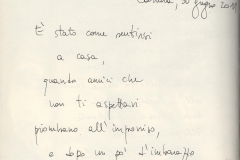 30 giugno
È stato come sentirsi
a casa,
quando amici che
non ti aspettavi
piombano all'improvviso,
e dopo un po' d'imbarazzo